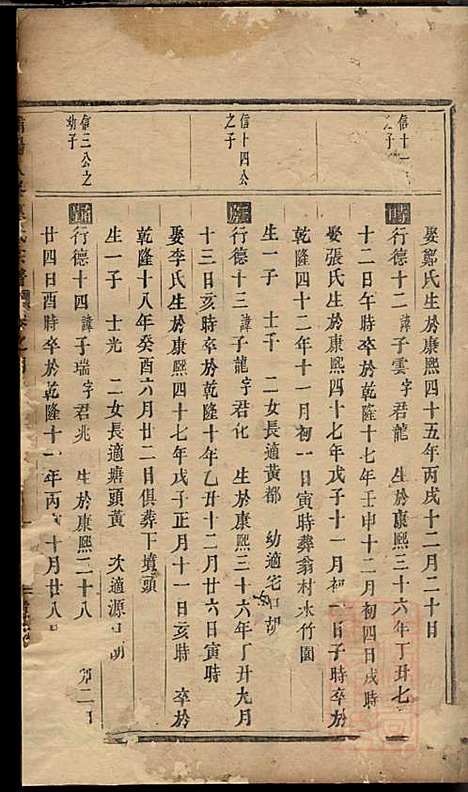 信十一
之子
娶鄭氏生於康熙四十五年丙戌十二月二十日
行德十二諱子雲字君龍 生於康熙三十六年丁丑七
十二日午時卒於乾隆十七年壬申十二月初四日戌時
娶張氏生於康熙四十七年戊子十一月初一日子時卒於
乾隆四十二年十一月初一日寅時葬翁村水竹園
信十四公
之子
生一子 士千 二女長適黃都 幼適宅口胡
行德十三諱子龍字君化 生於康熙三十六年丁丑九月
十三日亥時卒於乾隆十年乙丑十二月廿六日寅時
娶李氏生於康熙四十七年戊子正月十一日亥時 卒於
乾隆十八年癸酉六月廿二日俱葬下墳頭
信三公之
幼子
生一子 士光 二女長適塘頭黃 次適源口胡
行德十四諱子瑞字君兆 生於康熙二十八
廿四日酉時卒於乾隆十一年丙 十月廿八日